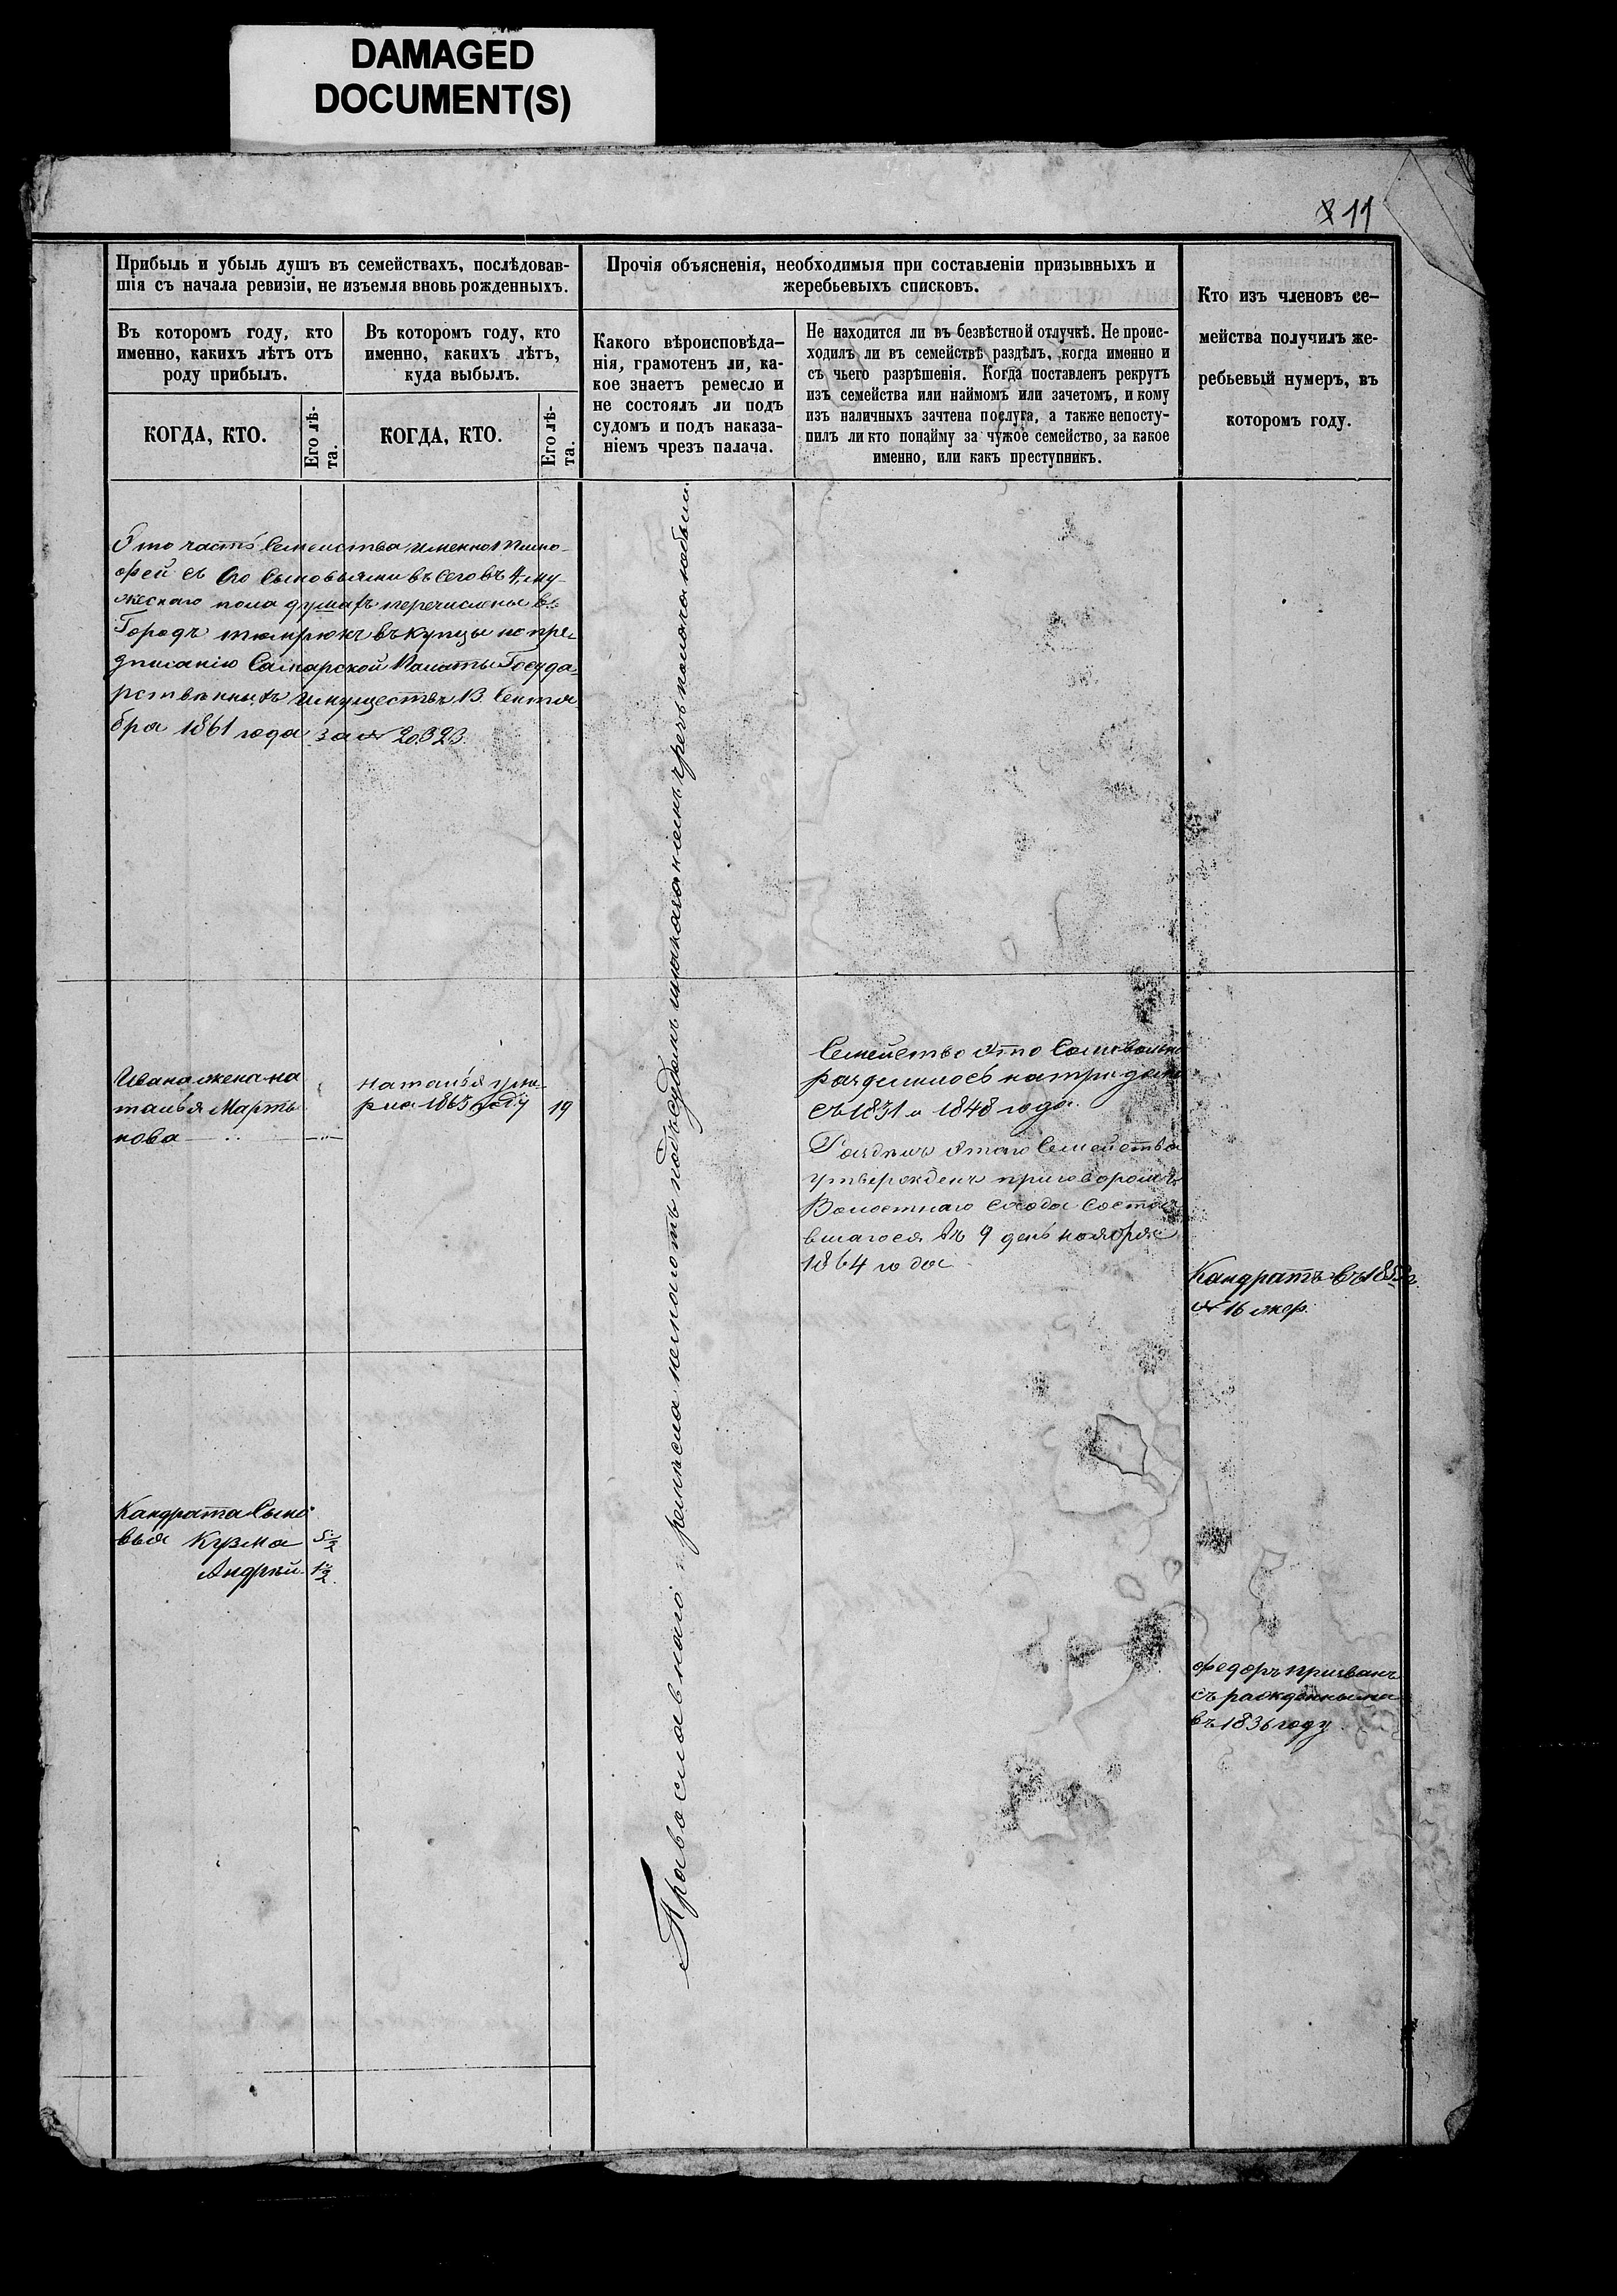 DAMAGED
DOCUMENT(S)
11
Прибыль и убыль душъ въ семействахъ, послѣдовав-
шія съ начала ревизіи, не изъемля вновь рожденныхъ.
Въ которомъ году, кто
именно, какихъ лѣтъ отъ
роду прибылъ.
Въ которомъ году, кто
именно, какихъ лѣтъ,
куда выбылъ.
КОГДА, КТО.
Его лѣ-
та.
КОГДА, КТО.
Его лѣ-
та.
Прочія объясненія, необходимыя при составленіи призывныхъ и
жеребьевыхъ списковъ.
Какого вѣроисповѣда-
нія, грамотенъ ли, ка-
кое знаетъ ремесло и
не состоялъ ли подъ
судомъ и подъ наказа-
ніемъ чрезъ палача.
Не находится ли въ безвѣстной отлучкѣ. Не проис-
ходилъ ли въ семействѣ раздѣлъ, когда именно и
съ чьего разрѣшенія. Когда поставленъ рекрутъ
изъ семейства или наймомъ или зачетомъ, и кому
изъ наличныхъ зачтена послуга, а также непосту-
пилъ ли кто понайму за чужое семейство, за какое
именно, или какъ преступникъ.
Кто изъ членовъ се-
мейства получилъ же-
ребьевый нумеръ, въ
которомъ году.
Это часть Семейства именно Тимо-
фей съ его сыновьями всего въ 4 му-
жескаго пола душахъ перечислены въ
Городъ темрюкъ въ купцы по пре-
дписанію Самарской Палаты Государ-
рственныхъ Имуществъ 13 Сентя
бря 1861 года за № 20323.
Ивана жена на
талья Марты
нова
наталья уме-
рла 1863 году 19
Семейство это Самовольно
разделилось на три дома
съ 1831 и 1848 года.
Разделъ этаго Семейства
утвержденъ приговоромъ
Волостнаго схода Состоя
вшагося въ 9 день ноября
1864 года
Кандратъ въ 185
№ 16 жер.
Кандрата Сыно
вья Кузма 5½
Андрей 1½
федоръ призванъ
съ рожденными
въ 1836 году
Православнаго ремесла не знаютъ подъ судомъ и наказаніемъ чрезъ палача небыли